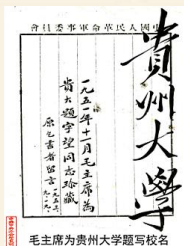 中國人民革命軍事委員會
貴州大學
一九五一年十一月毛主席為
貴大題字望同志珍藏
毛主席为贵州大学题写校名